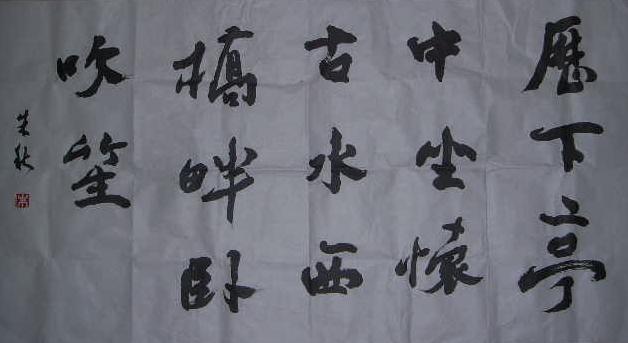 歷下亭
中坐懷
古水西
橋畔臥
吹笙
秋